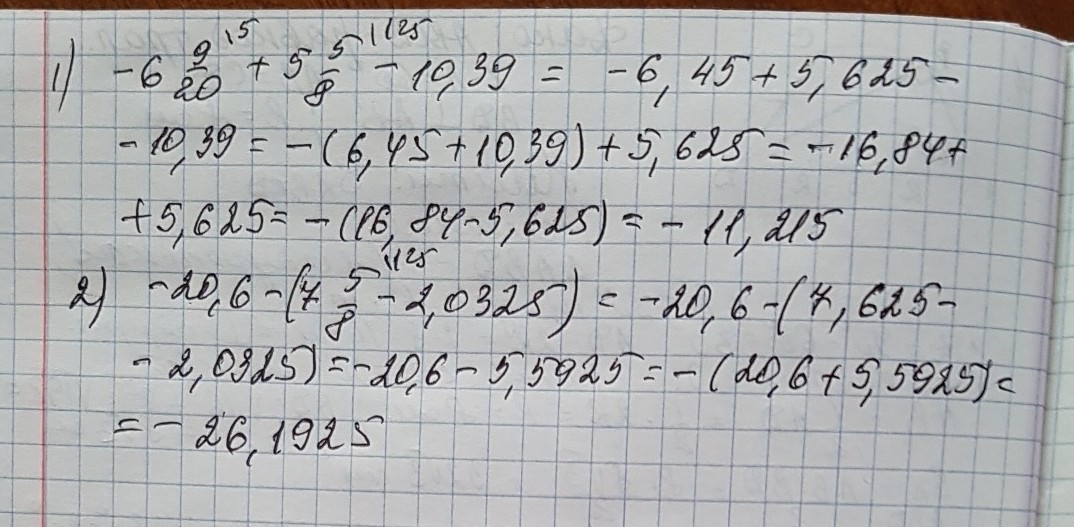 1) -6 9/20 ^\5 + 5 5/8 ^\125 - 10,39 = -6,45 + 5,625 -
- 10,39 = -(6,45 + 10,39) + 5,625 = -16,84 +
+ 5,625 = -(16,84 - 5,625) = -11,215
2) -20,6 - (7 5/8 ^\125 - 2,0325) = -20,6 - (7,625 -
- 2,0325) = -20,6 - 5,5925 = -(20,6 + 5,5925) =
= -26,1925